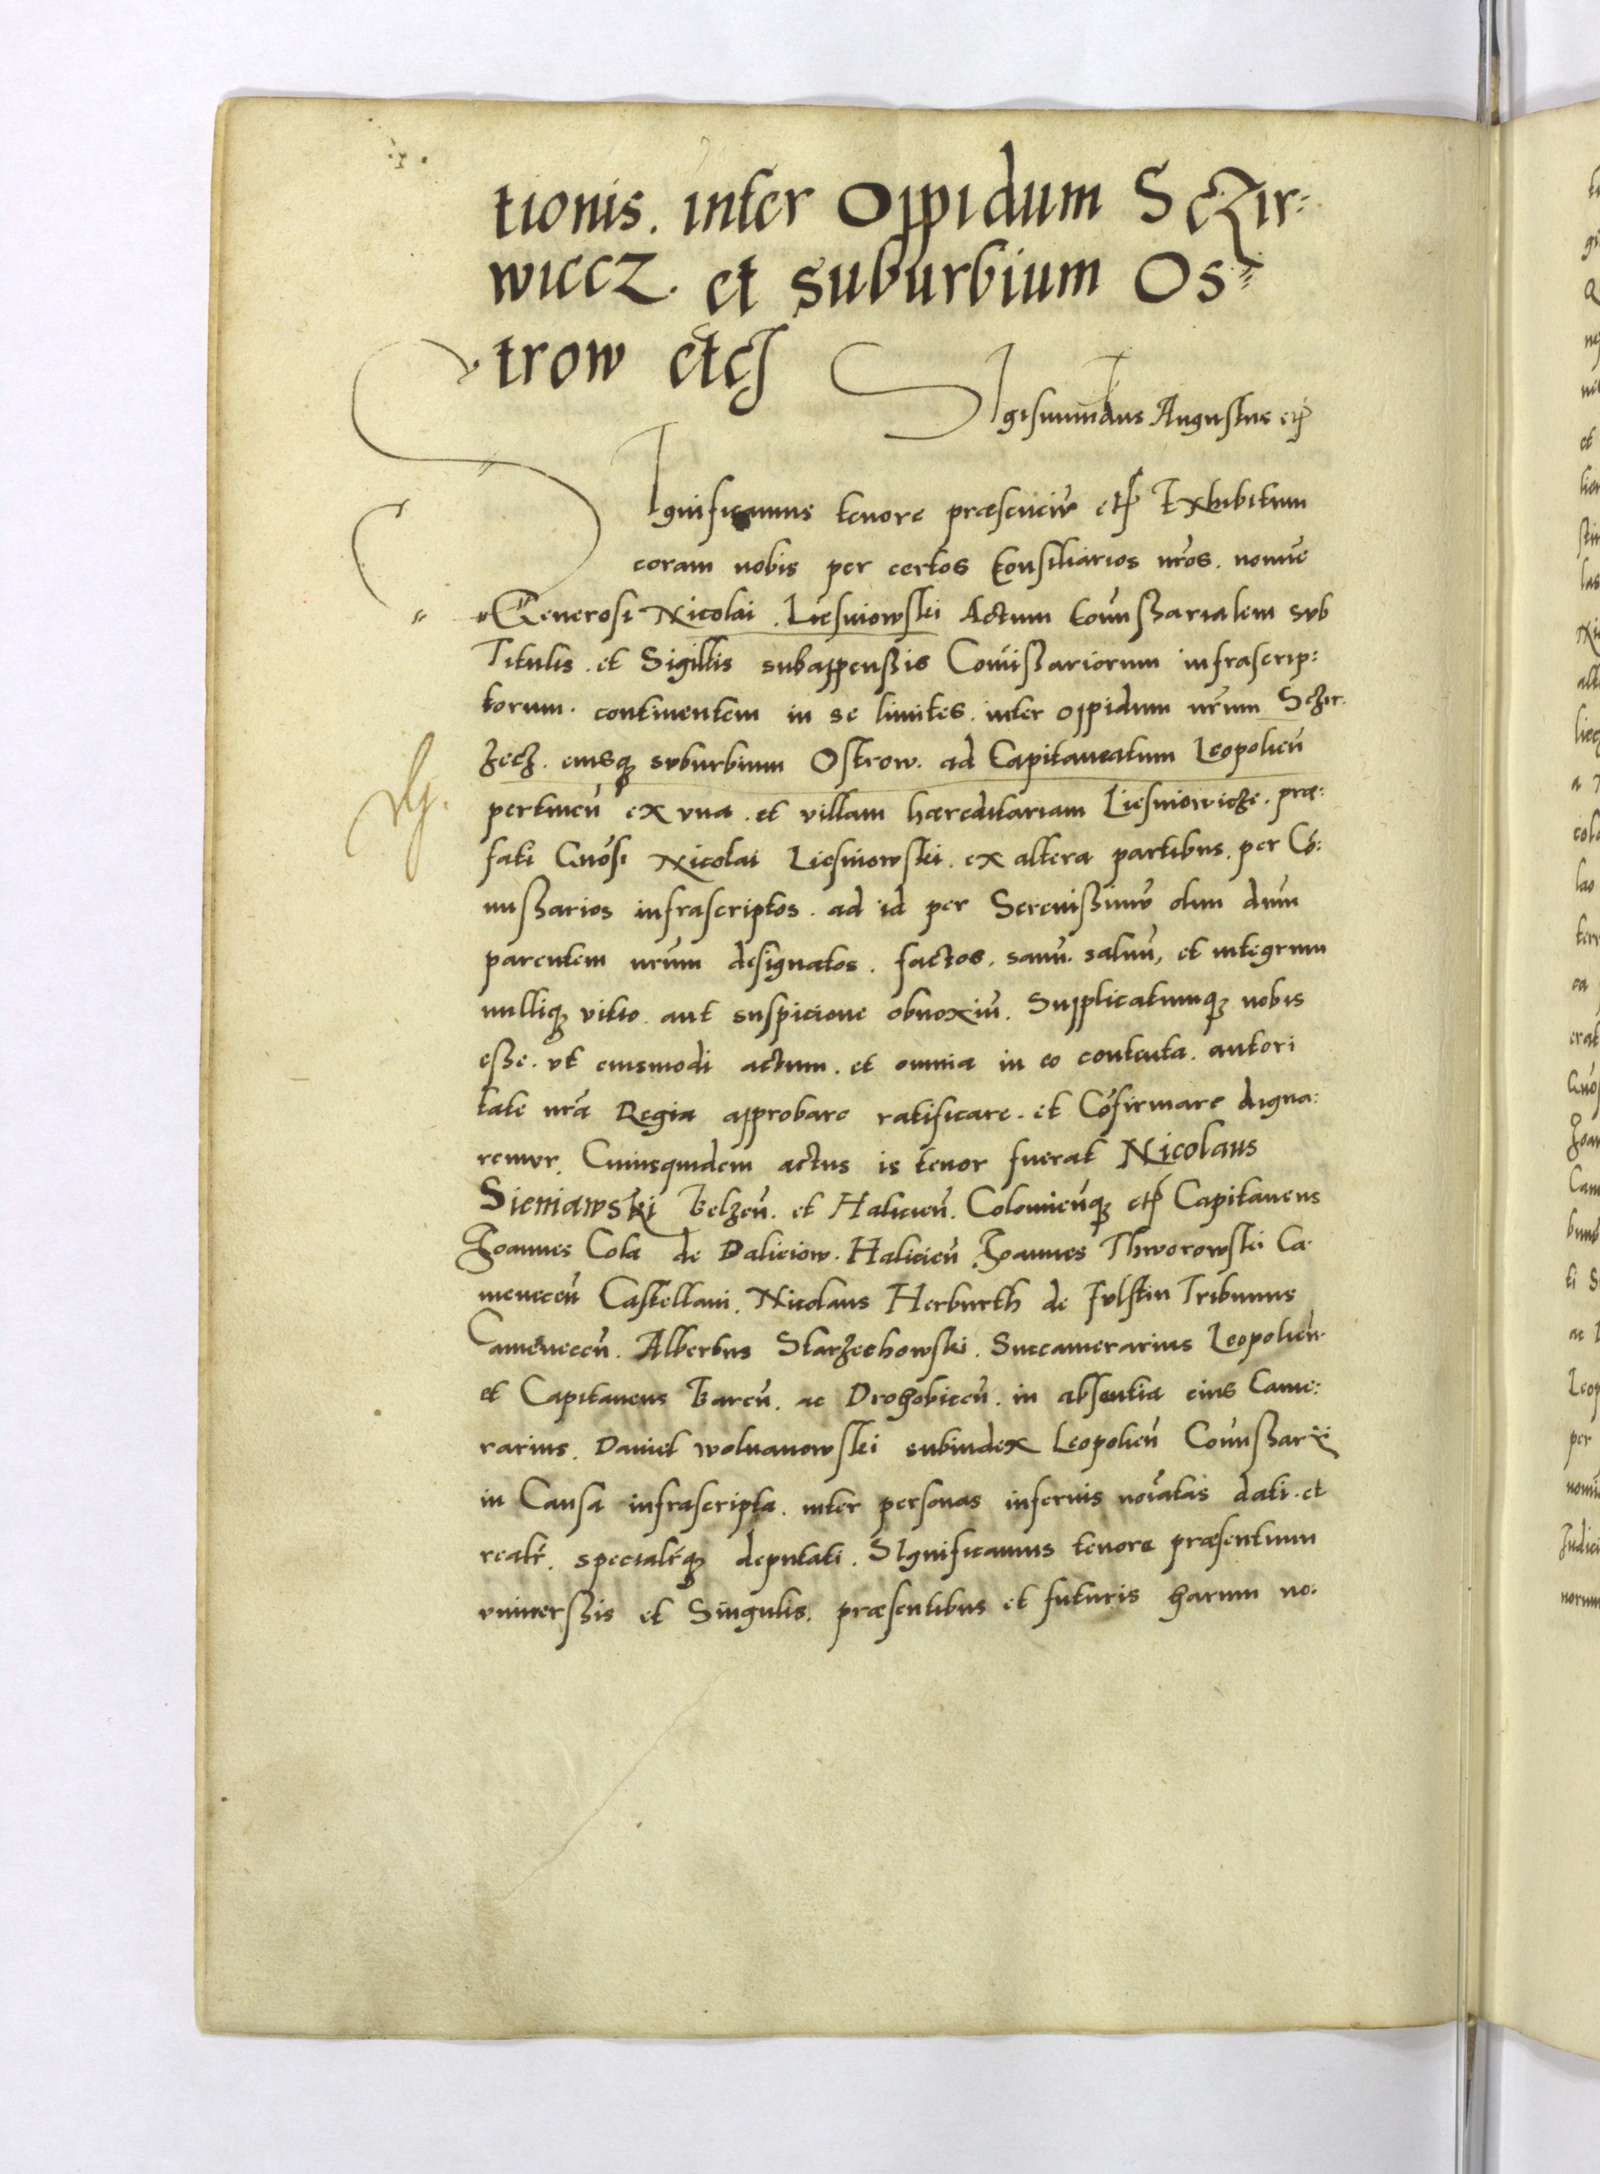 tionis. inter Oppidum Sczir=
wiecz. et suburbium Os=
trow etc
Sigismundus Augustus etc
Significamus tenore præsenciũ etc Exhibitum
coram nobis per certos Consiliarios nr̃os. nomine
Generosi Nicolai Liesniowski Actum Com̃issarialem sub
Titulis. et Sigillis subappensis Com̃issariorum infrascrip:
torum. continentem in se limites. inter oppidum nr̃um Sczir
zecz. eiusq; suburbium Ostrow. ad Capitaneatum Leopolien̄
pertinen̄ ex vna. et villam hæreditariam Liesniowicze. præ:
fati Gnosi Nicolai Liesniowski. ex altera partibus. per Cõ:
missarios infrascriptos. ad id per Serenissimũ olim dnũm
parentem nr̃um designatos. factos. sanũ. saluũ, et integrum
nulliq; vitio aut suspicione obnoxiũ. Supplicatumq; nobis
esse. vt eiusmodi actum. et omnia in eo contenta. autori
tate nr̃a Regia approbare ratificare. et Cõfirmare digna:
remur. Cuiusquidem actus is tenor fuerat Nicolaus
Sieniawski Belzen̄. et Halicien̄. Colomien̄q; etc Capitaneus
Joannes Cola de Daliciow. Halicien̄ Joannes Thworowski Ca
menecen̄ Castellani. Nicolaus Herburth de Fvlstin Tribunus
Camenecen̄. Albertus Starzechowski. Succamerarius Leopolien̄.
et Capitaneus Baren̄. ac Drohobicen̄. in absentia eius Came:
rarius. Daniel wolnanowski subiudex Leopolien̄ Com̃issarii
in Causa infrascripta. inter personas inferius noĩatas dati. et
realr̃. specialr̃q; deputati. Significamus tenore præsentium
vniuersis et Singulis. præsentibus et futuris harum no: